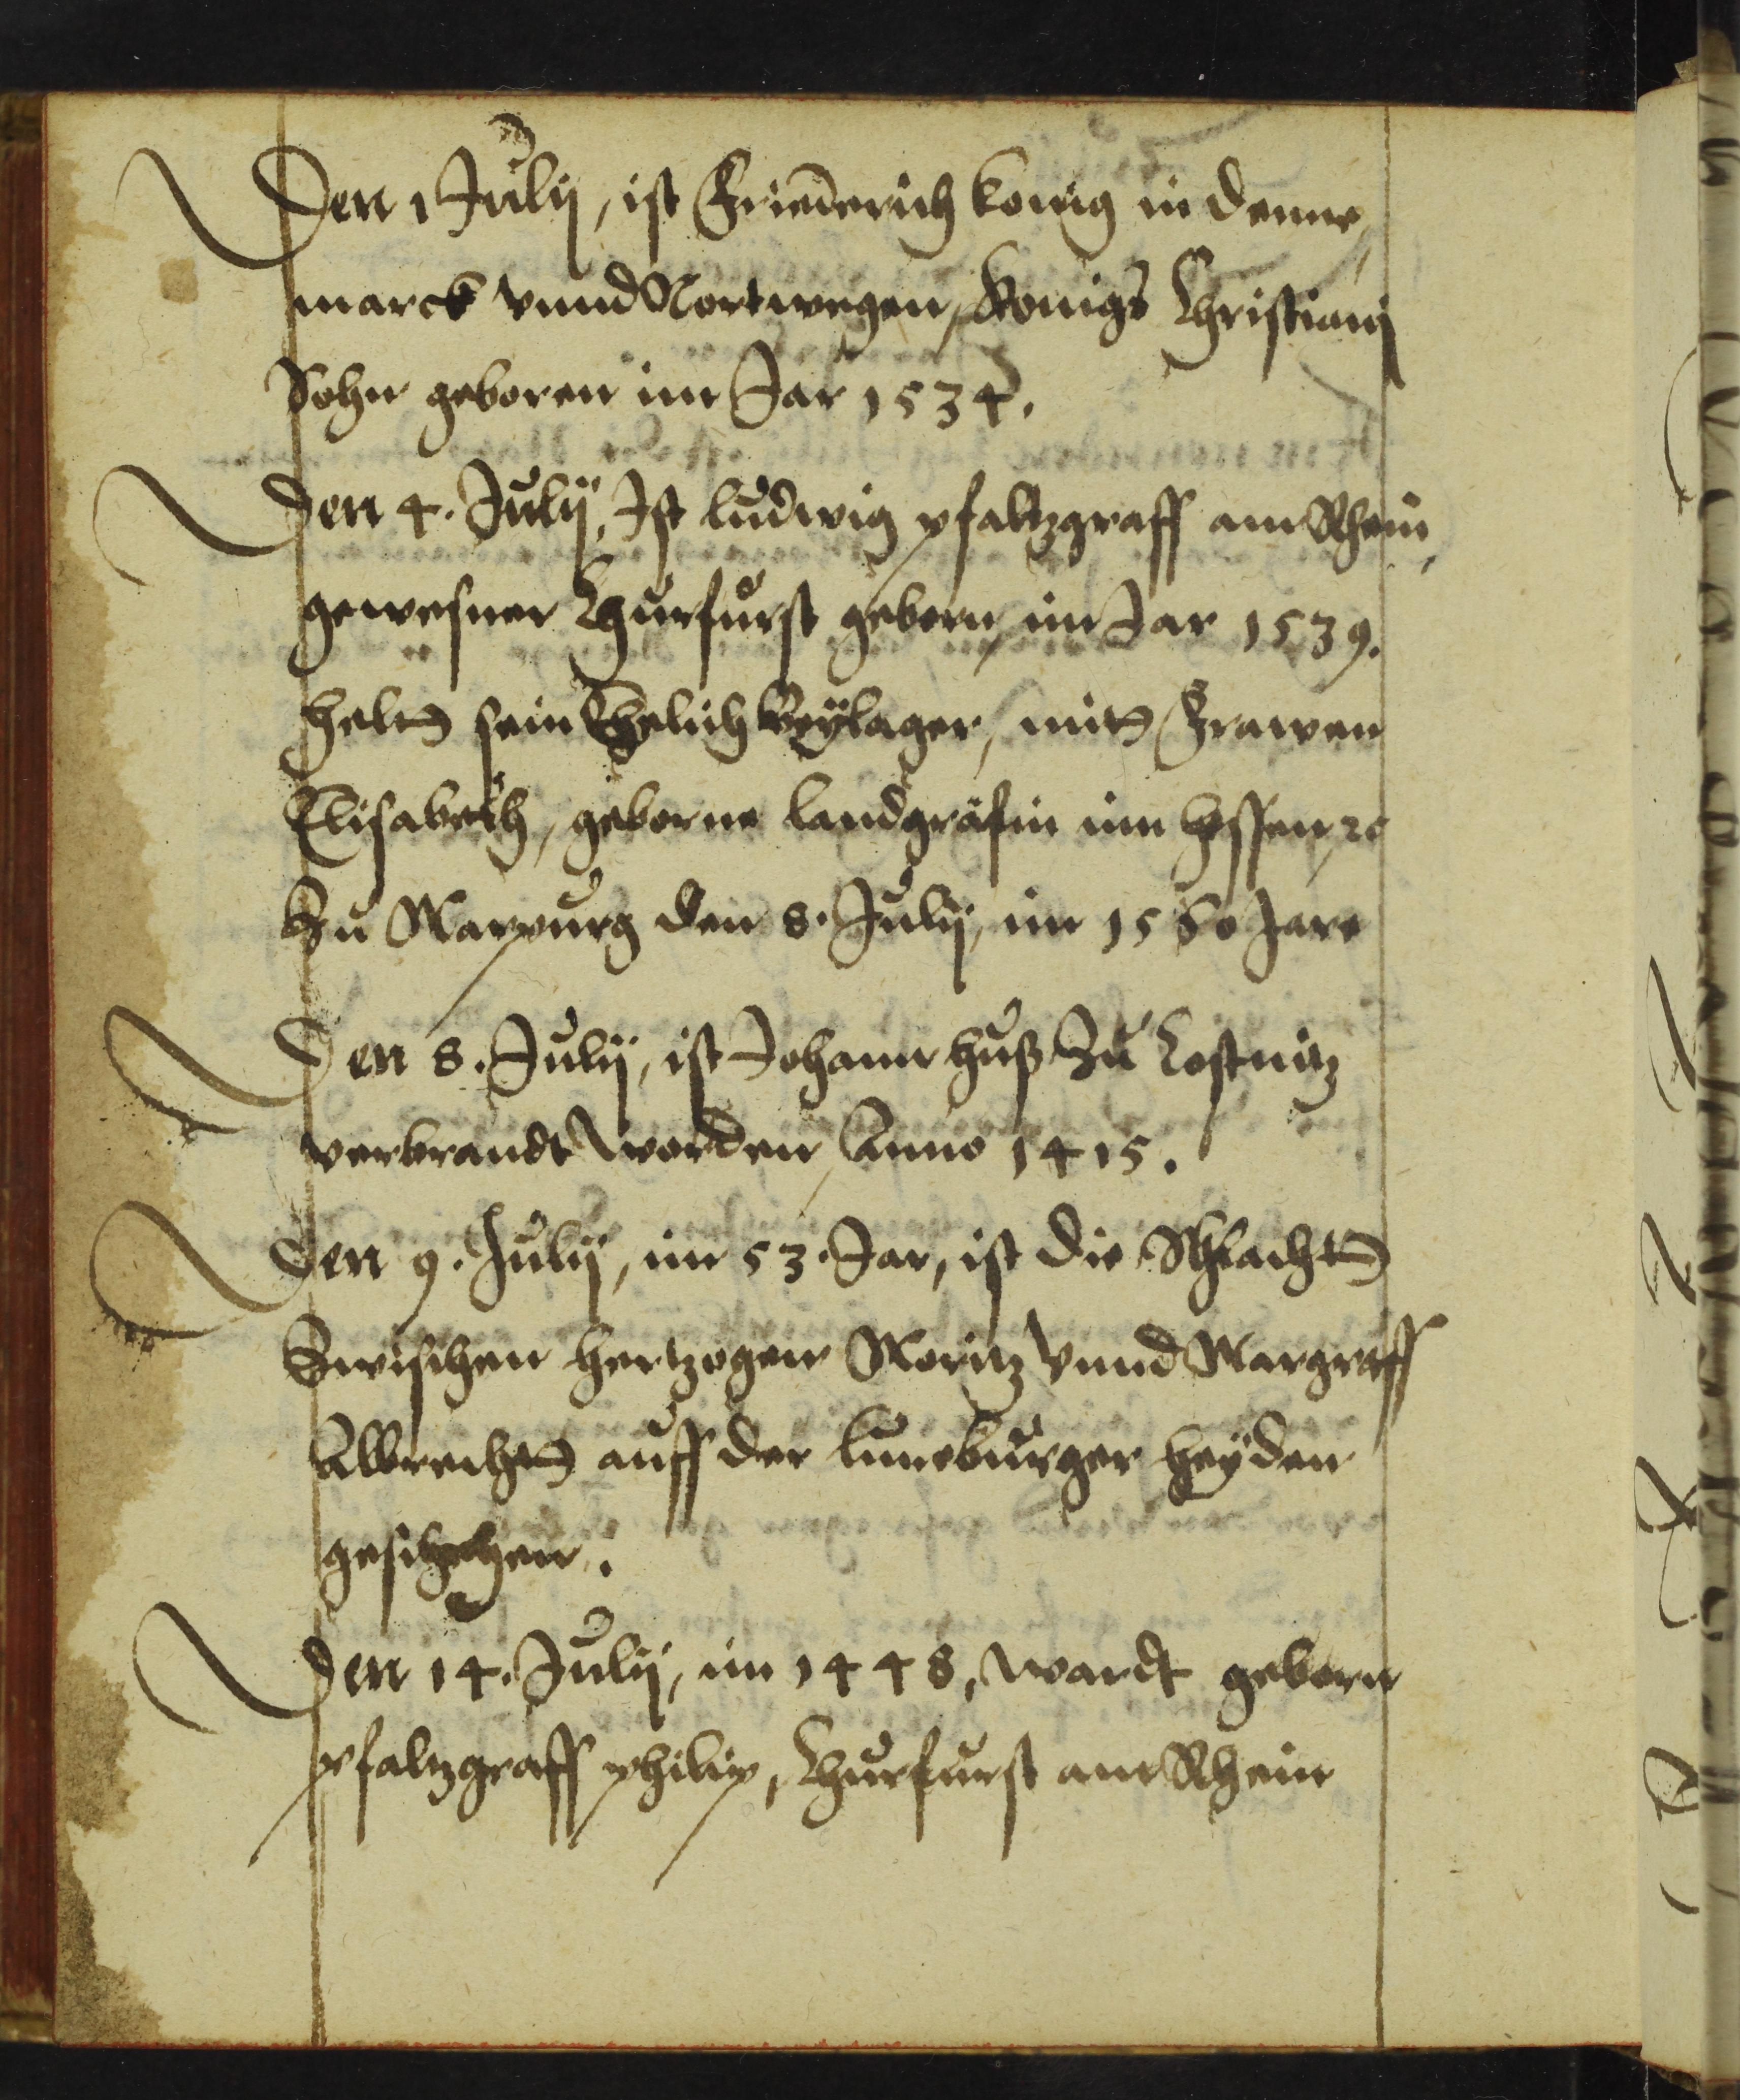 Den 1 Julij, ist Friederich konig in denne,
marck vnnd Nortwegen, Konigs Christianj
Sohn geboren im Jar 1534.
Den 4. Julij, Ist ludwig pfaltzgraff am Rhein,
gewesner Churfurst geborn, im Jar 1539.
Helt sein Ehelich Beylager, mit Frawen
Elisabeth, geborne landgräfin inn Hessen, ꝛc
Zu Marpurg den 8. Julij, im 1560 Jare
Den 8. Julij, ist Johann Huß Zu Costnitz
verbrandt worden Anno 1415.
Den 9. Julij, im 53. Jar, ist die Schlacht
Zwischen Hertzogen Moritz vnnd Margraff
Albrecht auff der luneburger Heyden
geschehen.
Den 14. Julij, im 1448, wardt geborn
pfaltzgraff philip, Churfurst am Rhein